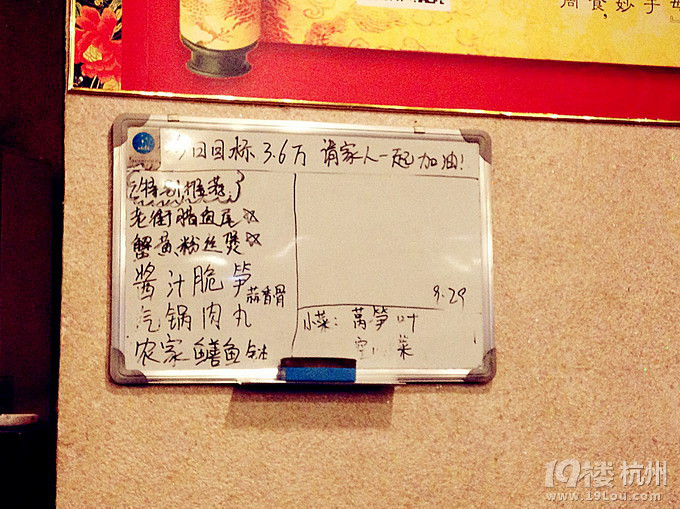 周食,妙手每
今日目标3.6万 请家人一起加油!
特别推荐
老街腊鱼尾☆
蟹黄粉丝煲☆
酱汁脆笋
蒜香骨
汽锅肉丸
农家鳝鱼
9.29
小菜: 莴笋叶
空 菜
19楼 杭州
www.19lou.com